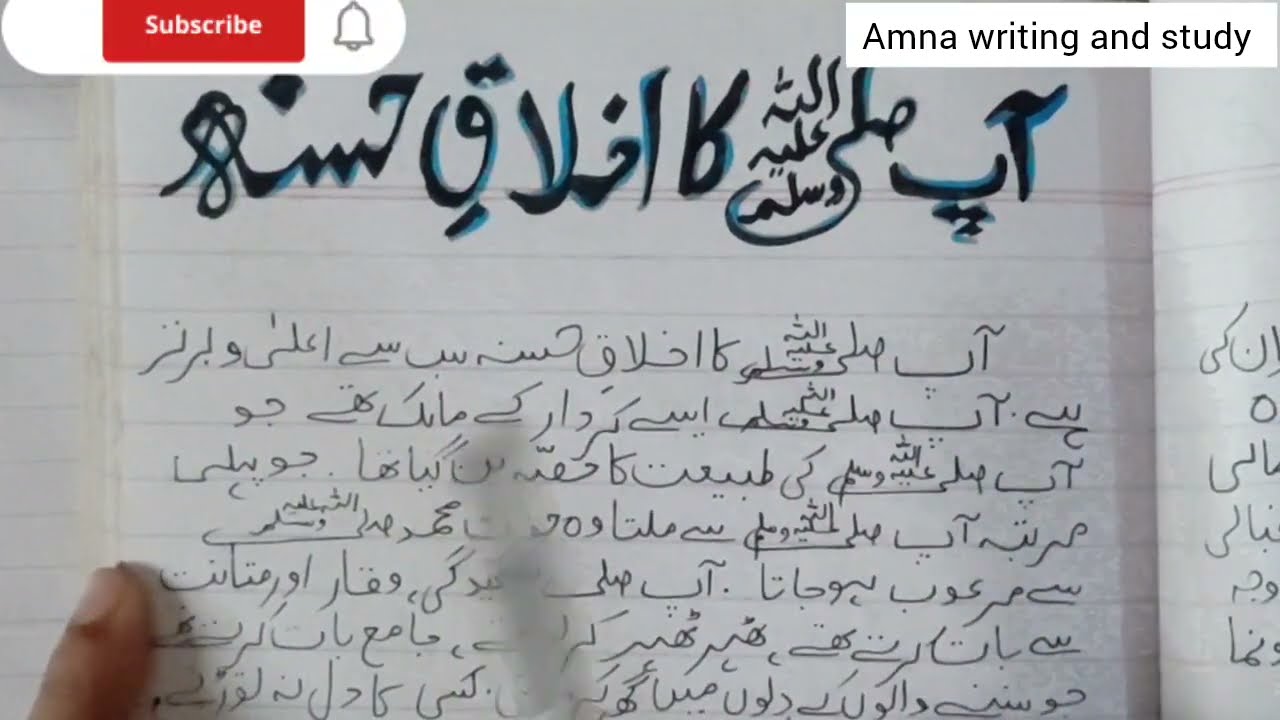 Subscribe
Amna writing and study
آپ صلی اللہ علیہ وسلم کا اخلاقِ حسنہ
آپ صلی اللہ علیہ وسلم کا اخلاقِ حسنہ سب سے اعلیٰ و برتر
ہے۔ آپ صلی اللہ علیہ وسلم ایسے کردار کے مالک تھے جو
آپ صلی اللہ علیہ وسلم کی طبیعت کا حصّہ بن گیا تھا۔ جو پہلی
مرتبہ آپ صلی اللہ علیہ وسلم سے ملتا وہ محمد صلی اللہ علیہ وسلم
سے مرعوب ہوجاتا۔ آپ صلی وقار اور متانت
سے بات کرتے تھے، ٹھہر ٹھہر کر جامع بات کرتے
جو سننے والوں کے دلوں میں کسی کا دل نہ توڑتے۔
ان کی
ہ
مالی
وجہ
ونما